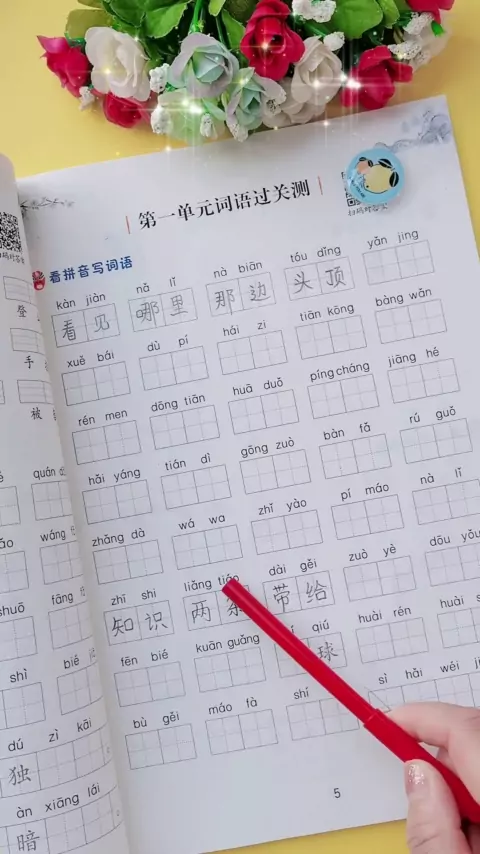 第一单元词语过关测
看拼音写词语
kàn jiàn nǎ lǐ nà biān tóu dǐng yǎn jing
看见 哪里 那边 头顶
xuě bái dù pí hái zi tiān kōng bàng wǎn
rén men dōng tiān huā duǒ píng cháng jiāng hé
hǎi yáng tián dì gōng zuò bàn fǎ rú guǒ
zhǎng dà wá wa zhǐ yào pí máo nà lǐ
zhī shi liǎng tiáo dài gěi zuò yè dōu
知识 两 带给
fēn bié kuān guǎng qiú huài rén huài shì
球
bù gěi máo fà shí sì hǎi wéi
5
登
手
被
quán
wáng
shuō fāng
shì bié
dú zì kāi
独
àn xiāng lái
暗